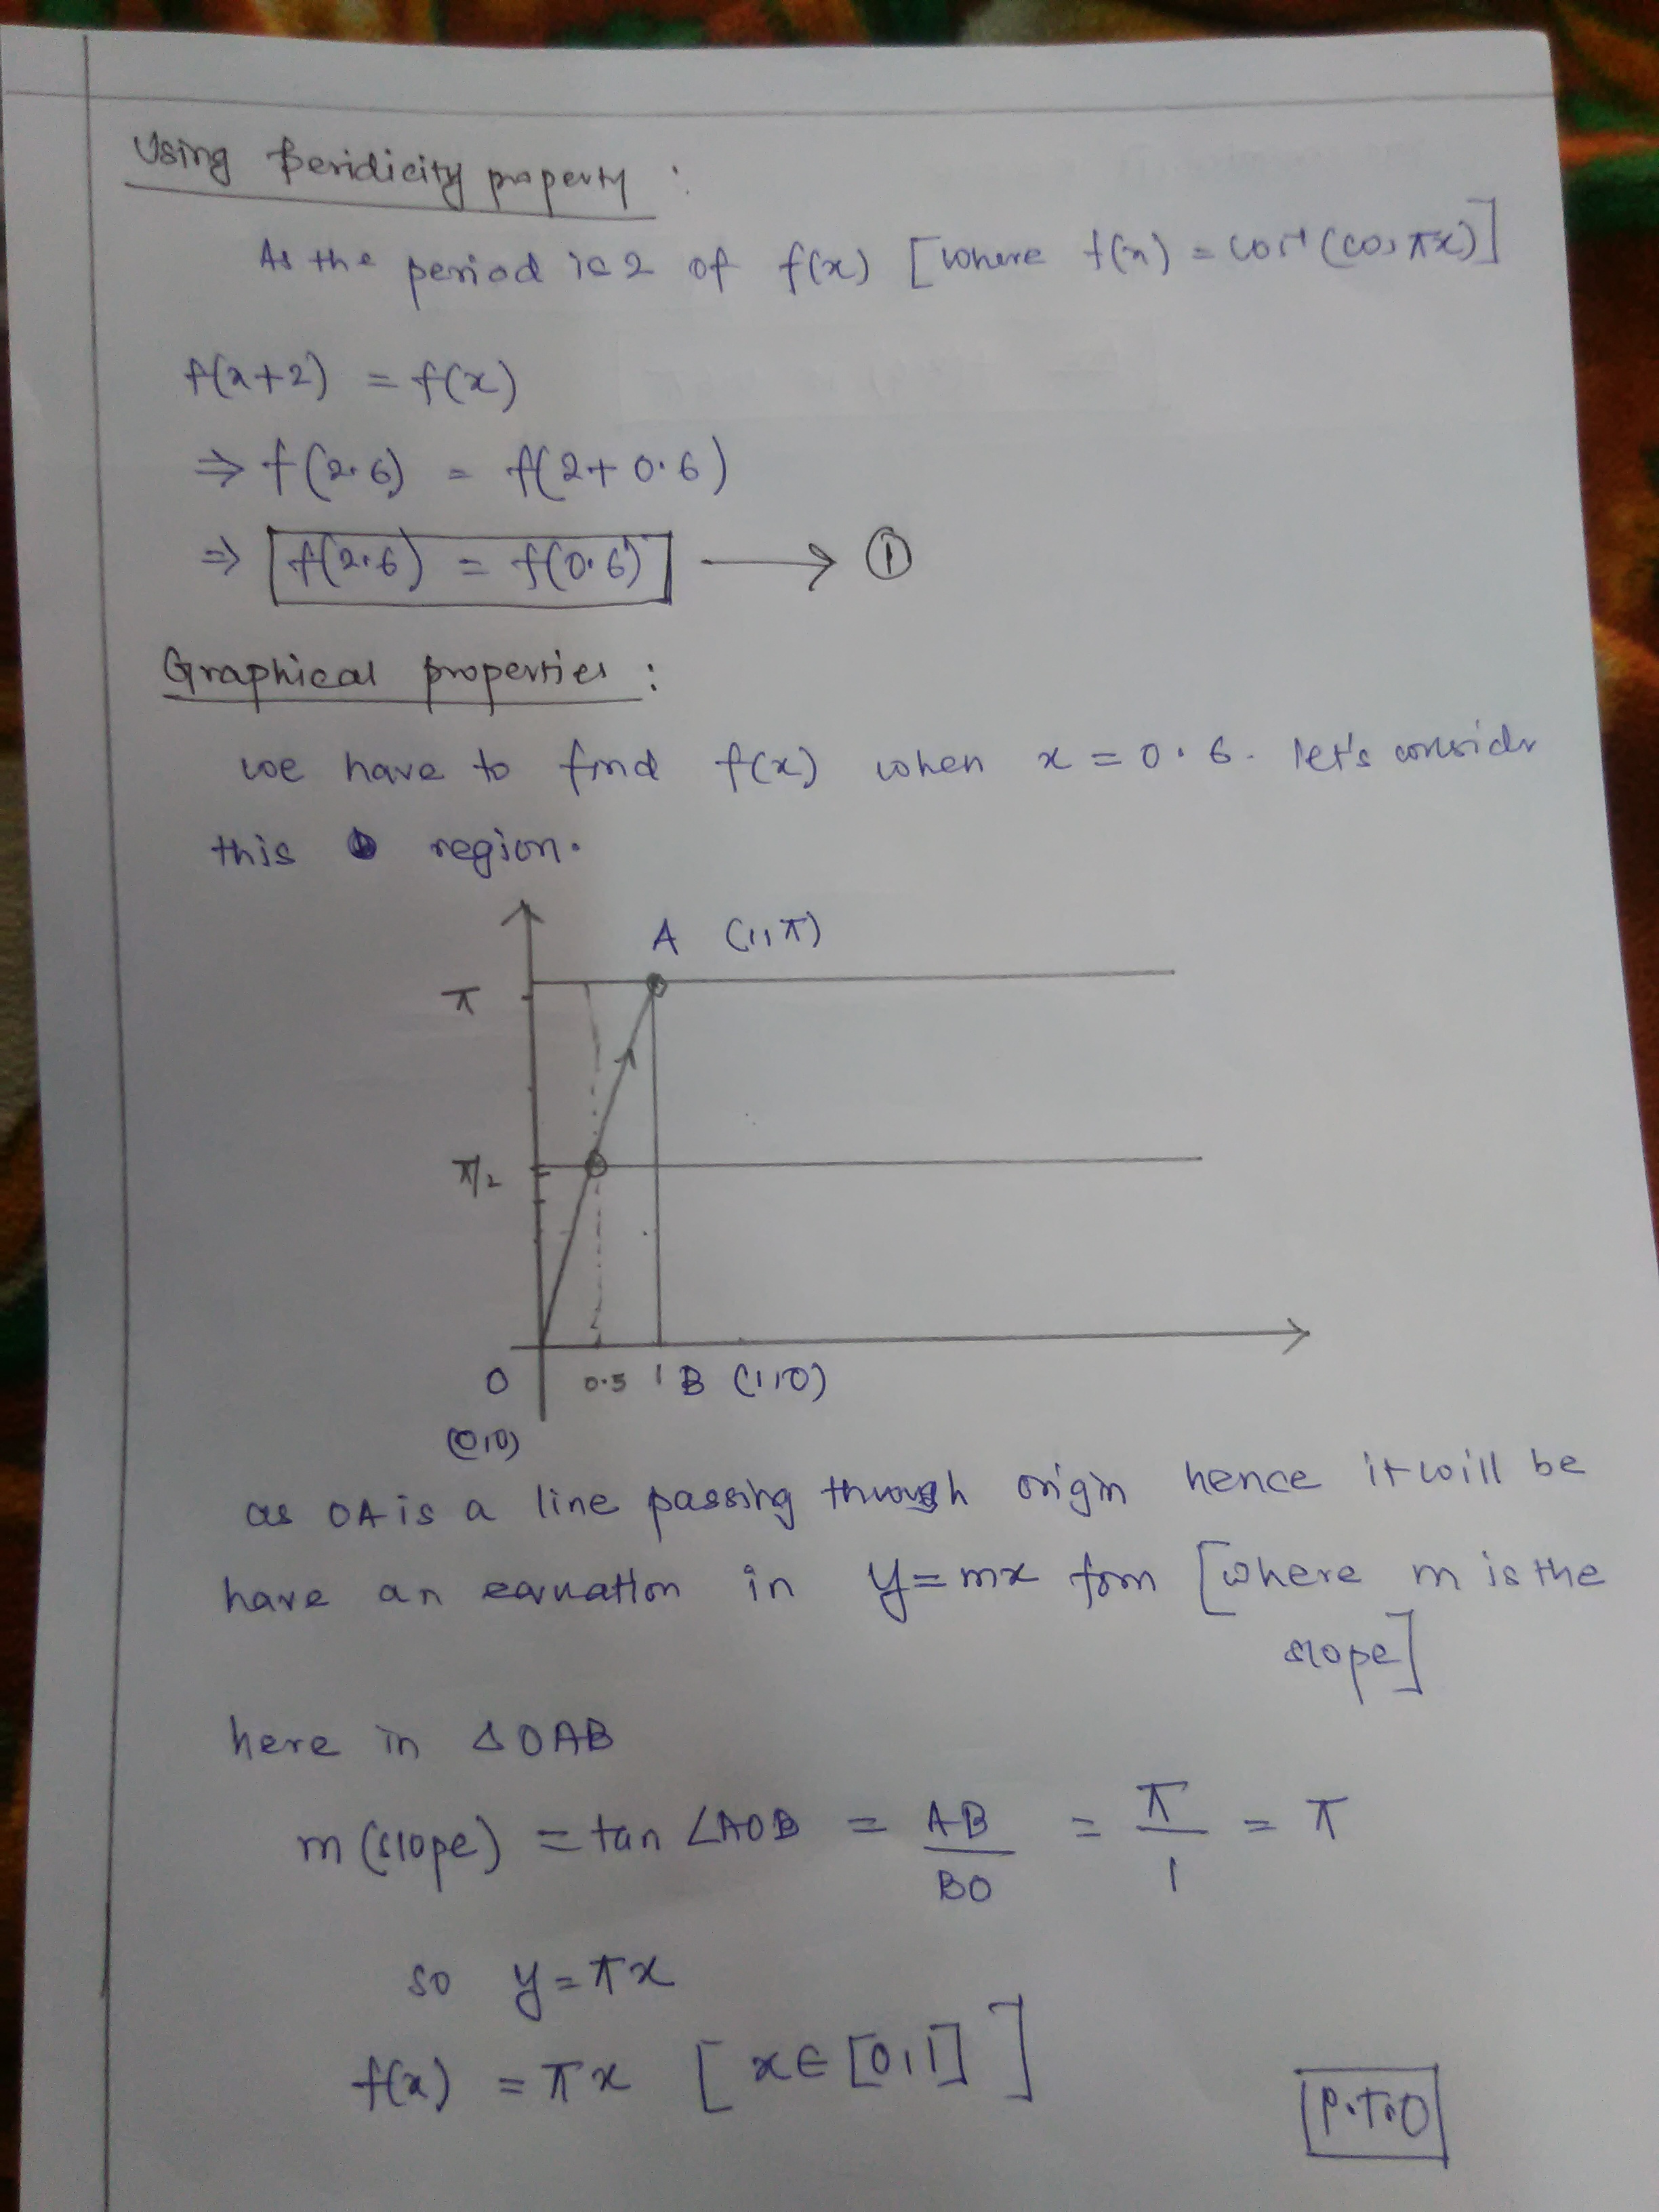 Using Peridicity property :
As the period is 2 of f(x) [where f(x) = cos⁻¹(cos πx)]
f(x+2) = f(x)
⇒ f(2.6) = f(2+0.6)
⇒ f(2.6) = f(0.6) → ①
Graphical properties :
we have to find f(x) when x = 0.6. let's consider
this region.
A (1,π)
π
π/2
O 0.5 1 B (1,0)
(0,0)
as OA is a line passing through origin hence it will be
have an equation in y=mx form [where m is the
slope]
here in ΔOAB
m (slope) = tan ∠AOB = AB/BO = π/1 = π
so y=πx
f(x) = πx [x∈[0,1]]
P.T.O